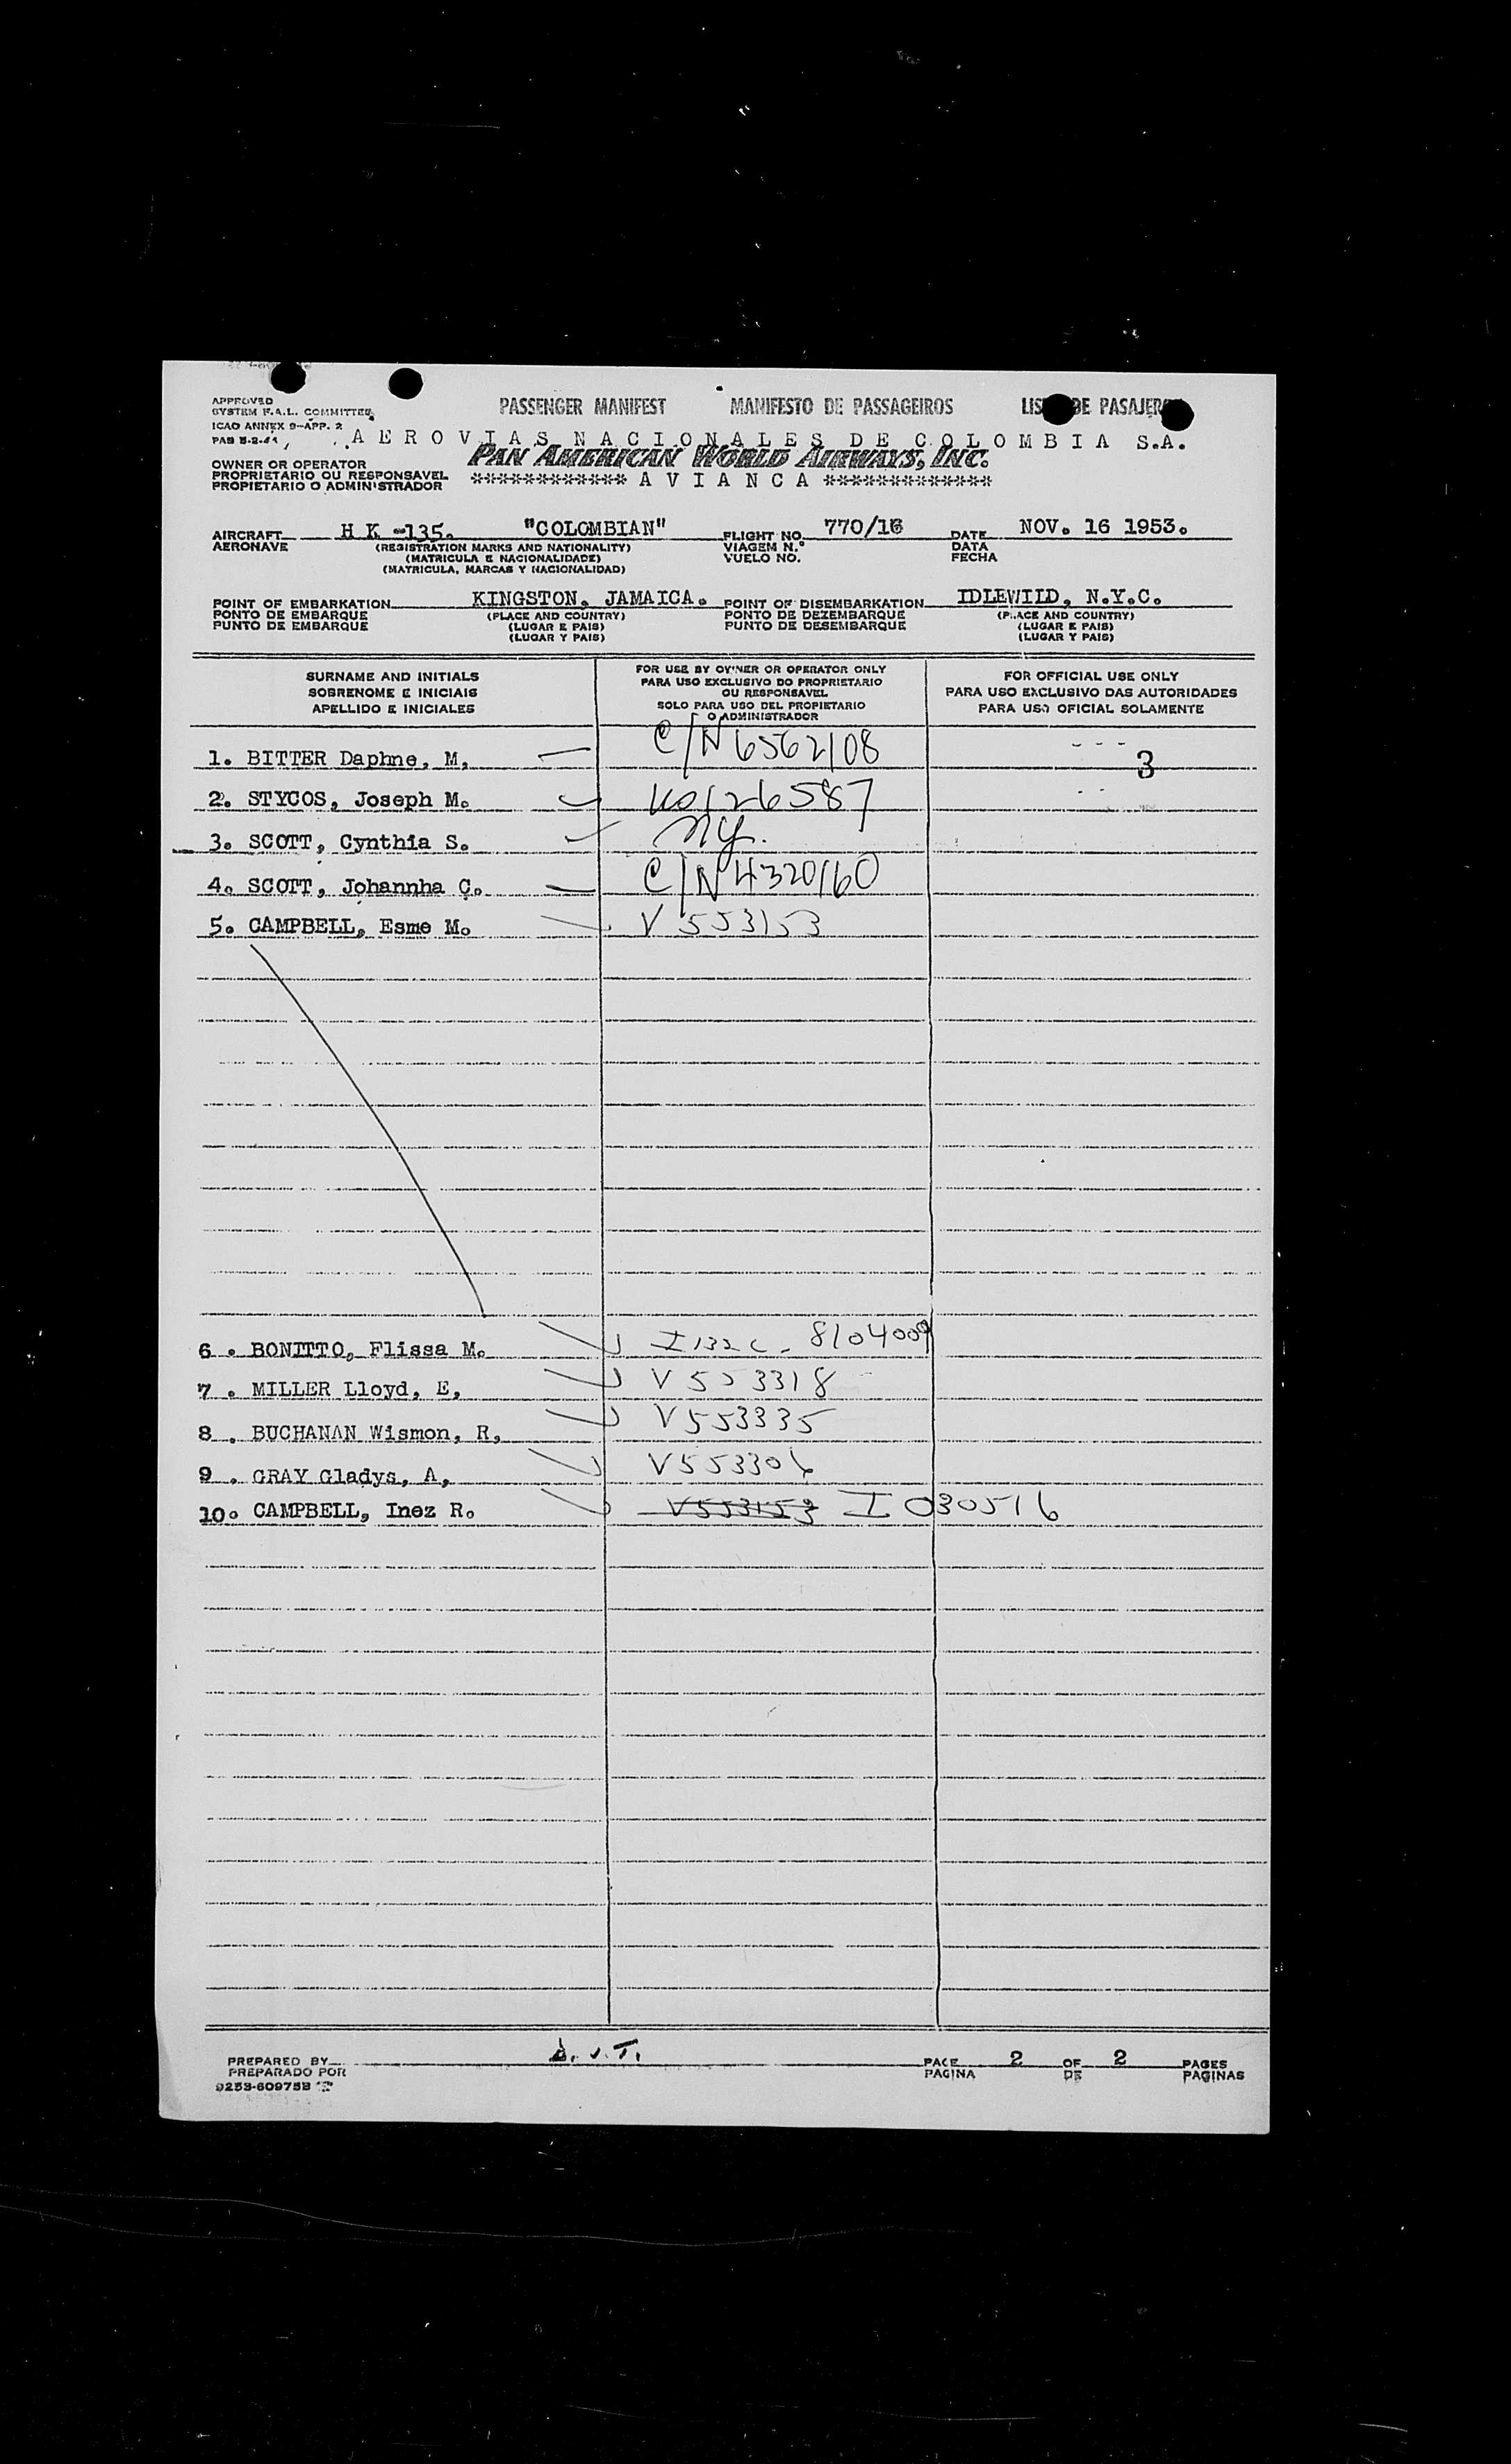 APPROVED
SYSTEM F.A.L. COMMITTEE
ICAO ANNEX 9-APP. 2
PASSENGER MANIFEST MANIFESTO DE PASSAGEIROS DE
AEROVIAS NACIONALES DE COLOMBIA S.A.
PAN AMERICAN WORLD AIRWAYS, INC.
OWNER OR OPERATOR
PROPRIETARIO OU RESPONSAVEL
PROPIETARIO O ADMINISTRADOR
************ AVIANCA *************
AIRCRAFT H K -135. "COLOMBIAN" FLIGHT NO. DATE NOV. 16 1953.
AERONAVE (REGISTRATION MARKS AND NATIONALITY) VIAGEM N.° DATA
(MATRICULA E NACIONALIDADE) VUELO NO. FECHA
(MATRICULA, MARCAS Y NACIONALIDAD)
POINT OF EMBARKATION KINGSTON, JAMAICA. POINT OF DISEMBARKATION IDLEWILD, N.Y.C.
PONTO DE EMBARQUE (PLACE AND COUNTRY) PONTO DE DEZEMBARQUE (PLACE AND COUNTRY)
PUNTO DE EMBARQUE (LUGAR E PAIS) PUNTO DE DESEMBARQUE (LUGAR E PAIS)
(LUGAR Y PAIS) (LUGAR Y PAIS)
SURNAME AND INITIALS
SOBRENOME E INICIAIS
APELLIDO E INICIALES
FOR USE BY OWNER OR OPERATOR ONLY
PARA USO EXCLUSIVO DO PROPRIETARIO
OU RESPONSAVEL
SOLO PARA USO DEL PROPIETARIO
O ADMINISTRADOR
FOR OFFICIAL USE ONLY
PARA USO EXCLUSIVO DAS AUTORIDADES
PARA USO OFICIAL SOLAMENTE
1. BITTER Daphne, M. C/N 6562108 3
2. STYCOS, Joseph M. 126587
3. SCOTT, Cynthia S. NY.
4. SCOTT, Johannha C. C/N 4320160
5. CAMPBELL, Esme M. V 553153
6 . BONITTO, Flissa M. I 132 C - 8104009
7 . MILLER Lloyd, E, V 553318
8 . BUCHANAN Wismon, R, V553335
9 . GRAY Gladys, A, V553306
10. CAMPBELL, Inez R. V553153 I 030516
PREPARED BY PAGE 2 OF 2 PAGES
PREPARADO POR PAGINA DE PAGINAS